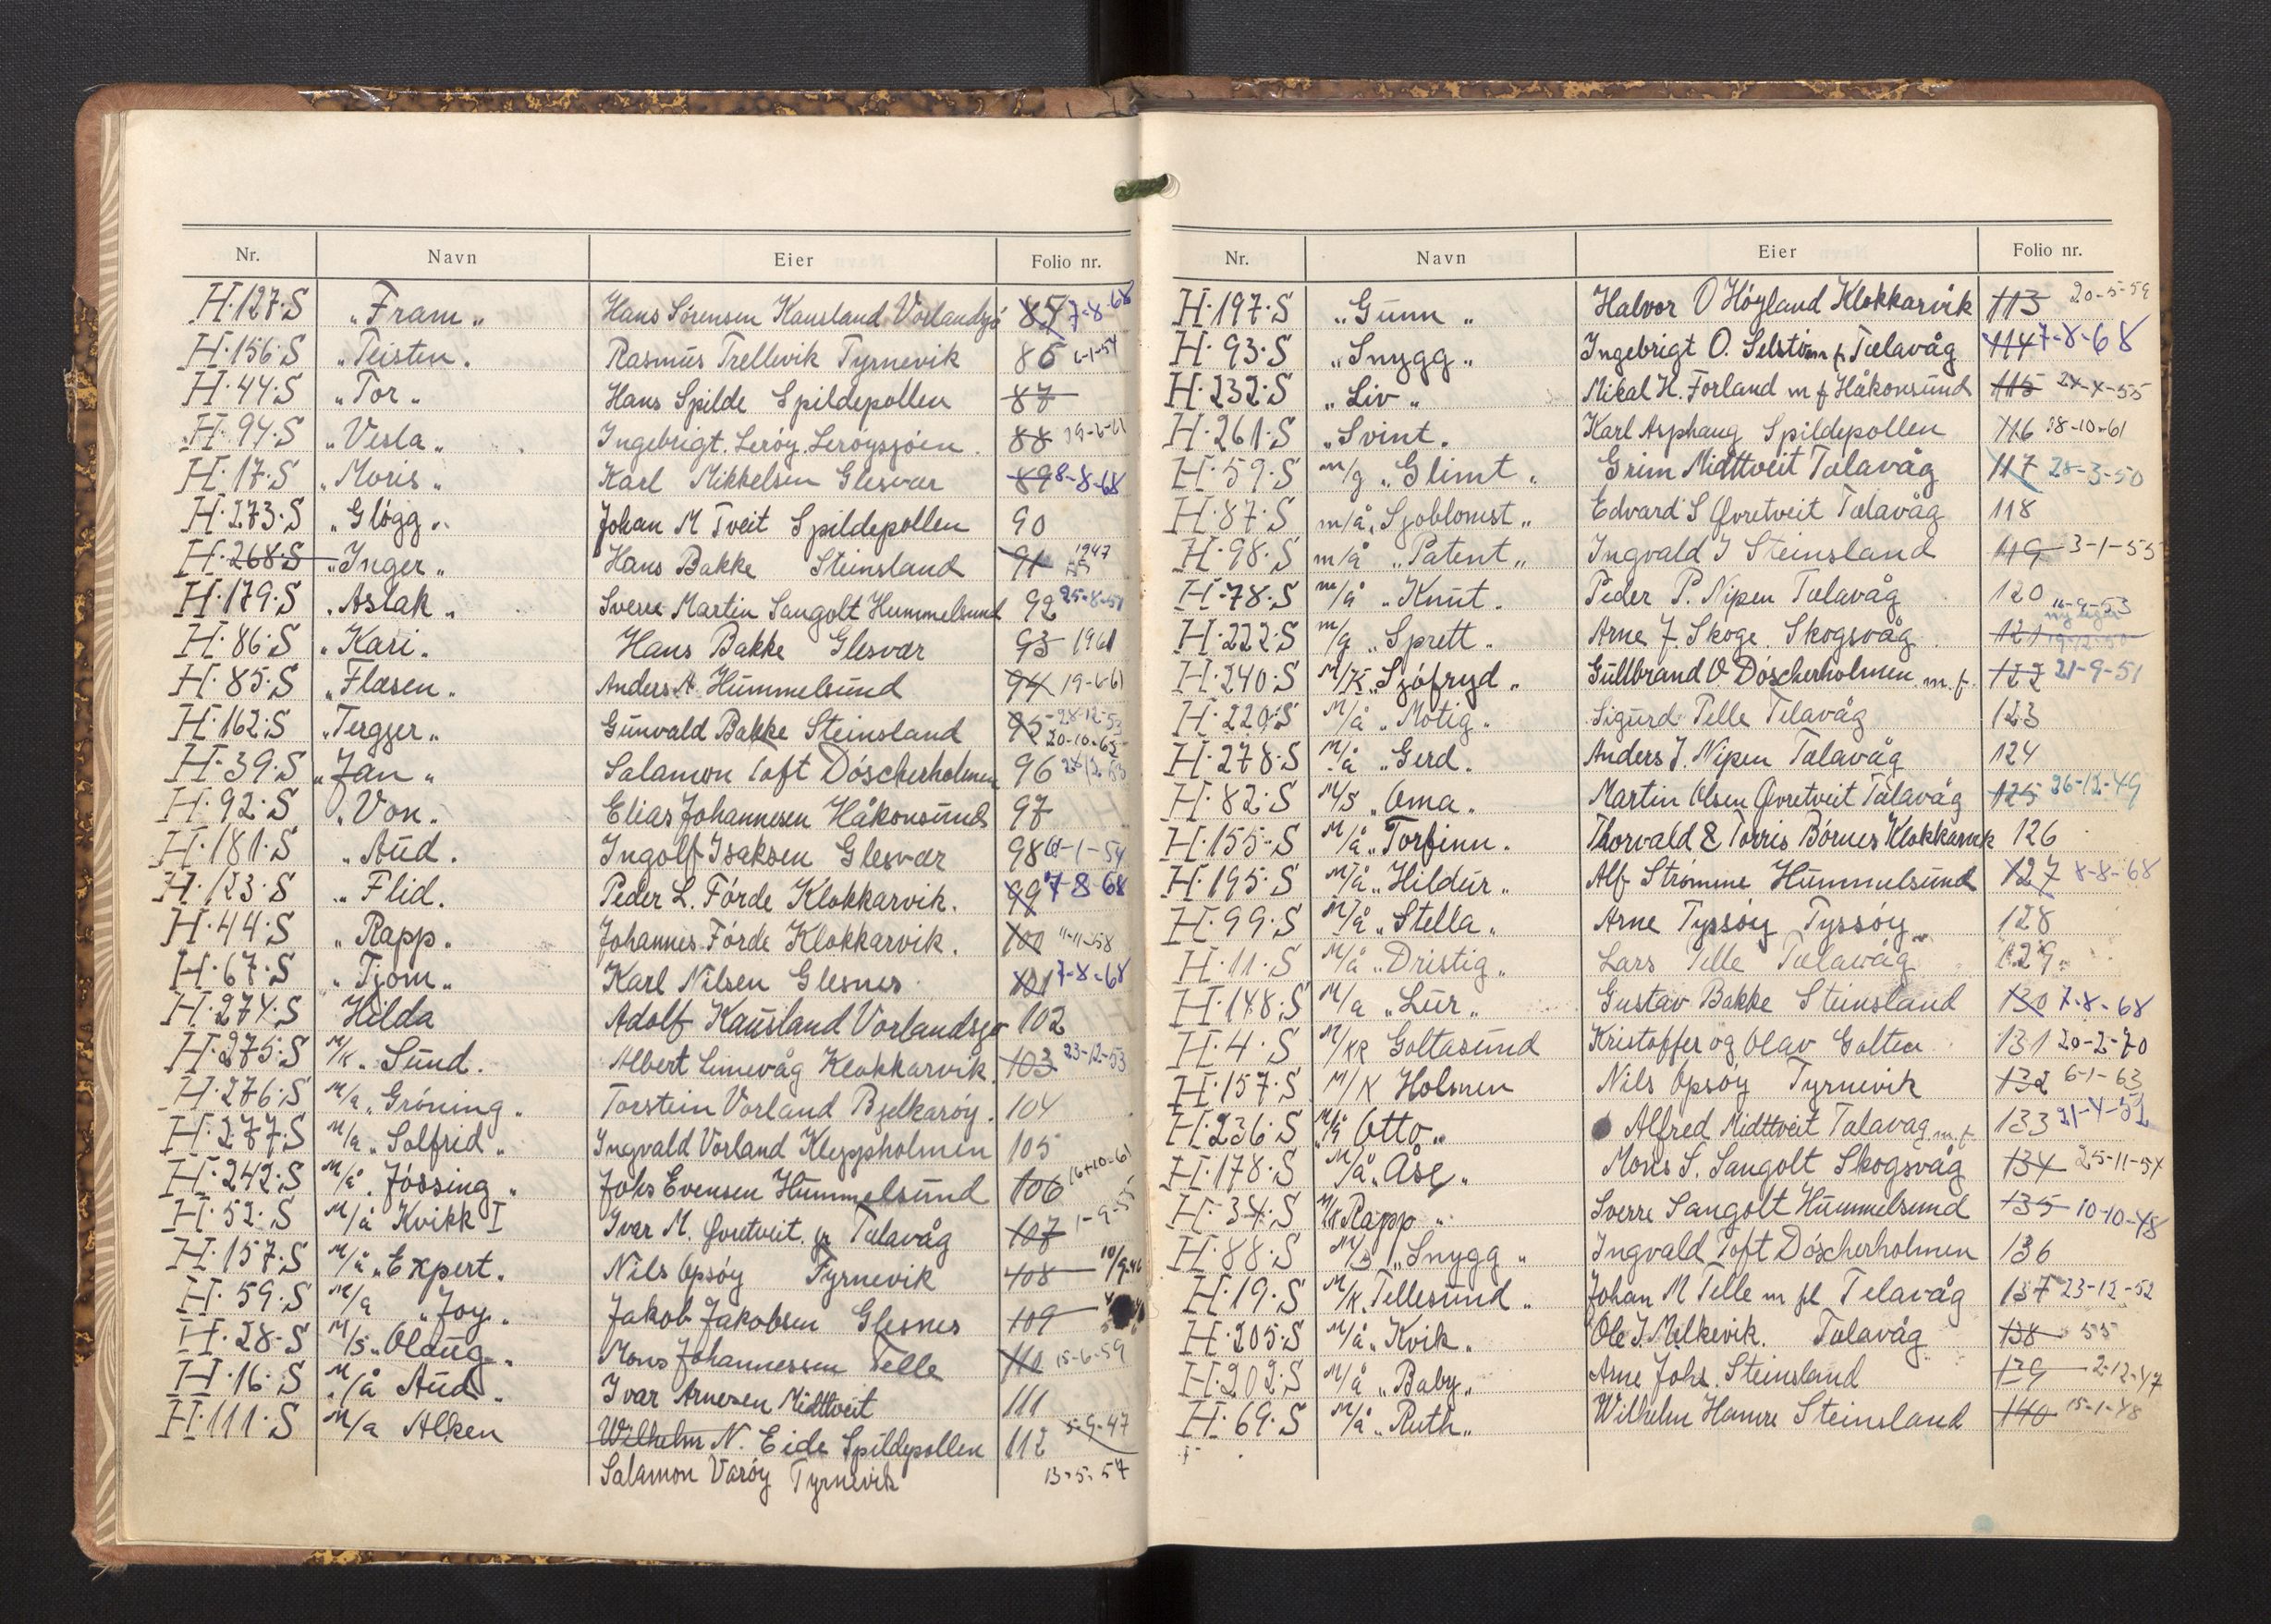 Nr. Navn Eier Folio nr.
H.127.S „Fram„ Hans Sørensen Kausland Vorlandsjø 85 7-8-68
H.156.S „Teisten. Rasmus Trellevik Tyrnevik 86 6-1-54
H.44.S „Tor„ Hans Spilde Spildepollen 87
H.94.S „Vesla„ Ingebrigt. Lerøy. Lerøysjøen 88 19-6-61
H.17.S „Moris„ Karl Mikkelsen Glesvær 89 8-8-68
H.273.S „Gløgg„ Johan M Tveit Spildepollen 90
H.268.S „Inger„ Hans Bakke Steinsland 91 1947
H.179.S „Aslak„ Sverre Martin Sangolt Hummelsund 92 25-8-51
H.86.S „Kari. Hans Bakke Glesvær 93 1961
H.85.S „Flæsen. Anders A. Hummelsund 94 19-6-61
H.162.S „Tergger„ Gunvald Bakke Steinsland 95 28-12-53
20-10-65
H.39.S „Jan„ Salamon Toft Døscherholmen 96
H.92.S „Von. Elias Johannesen Håkonsund 97
H.181.S „Aud. Ingolf Isaksen Glesvær 98 6-1-54
H.123.S „Flid. Peder L. Førde Klokkarvik. 99 7-8-68
H.44.S „Rapp. Johannes Førde Klokkarvik. 100 11-11-58
H.67.S „Tjom„ Karl Nilsen Glesnes 101 7-8-68
H.274.S Hilda Adolf Kausland Vorlandsjø 102
H.275.S M/K. Sund. Albert Linnevåg Klokkarvik. 103 23-12-53
H.276.S M/a „Grøning„ Torstein Vorland Bjelkarøy. 104
H.277.S M/a „Solfrid„ Ingvald Vorland Kleppholmen 105
H.242.S M/å. Jøssing„ Johs Evensen Hummelsund 106 16-10-61
H.52.S M/å Kvikk I Ivar M. Øvretveit. Telavåg 107 1-9-55
H.157.S M/å „Expert. Nils Opsøy Tyrnevik 108 10/9-46
H.59.S M/a „Joy„ Jakob Jakobsen Glesnes 109
H.28.S M/s „Olaug„ Mons Johannessen Telle 110 15-6-59
H.16.S M/å Aud„ Ivar Arnesen Midttveit 111
H.111.S M/a Alken Wilhelm N. Eide Spildepollen 112 5-9-47
Salamon Varøy Tyrnevik 13-5-57
Nr. Navn Eier Folio nr.
H.197.S „Gunn„ Halvor O Høyland Klokkarvik 113 20-5-59
H.93.S „Snygg„ Ingebrigt O. Selstøm f. Telavåg 114 7-8-68
H.232.S „Liv„ Mikal H. Forland m f Håkonsund 115 24-4-55
H.261.S „Svint. Karl Asphaug Spildepollen 116 18-10-61
H.59.S m/g „Glimt„ Grim Midttveit Telavåg 117 28-3-50
H.87.S m/å „Sjøblomst„ Edvard S Øvretveit Telavåg 118
H.98.S m/å „Patent„ Ingvald J Steinsland 119 3-1-55
H.78.S m/å „Knut. Peder P. Nipen Telavåg 120
H.222.S m/g „Sprett. Arne J. Skoge. Skogsvåg 121 16-9-53
19-12-50
H.240.S M/K „Sjøfryd„ Gullbrand O Døscherholmen m.f. 122 21-9-51
H.220.S M/å „Motig„ Sigurd Telle Telavåg 123
H.278.S M/å „Gerd. Anders J. Nipen Telavåg 124
H.82.S M/S „Oma. Martin Olsen Øvretveit Telavåg 125 26-12-49
H.155.S M/å „Torfinn. Thorvald & Torris Børnes Klokkarvik 126
H.195.S M/å „Hildur„ Alf Strømme Hummelsund 127 8-8-68
H.99.S M/å „Stella„ Arne Tyssøy Tyssøy 128
H.11.S M/å „Dristig„ Lars Telle Telavåg 129
H.148.S M/a „Lur„ Gustav Bakke Steinsland 130 7-8-68
H.4.S M/KR Goltasund Kristoffer og Olav Golten 131 20-2-70
H.157.S M/K Holmen Nils Opsøy Tyrnevik 132 6-1-63
H.236.S M/å Otto„ Alfred Midttveit Telavåg m.f. 133 21-4-52
H.178.S M/å „Åse„ Mons S. Sangolt Skogsvåg 134 25-11-54
H.34.S M/K Rapp„ Sverre Sangolt Hummelsund 135 10-10-48
H.88.S M/S „Snygg„ Ingvald Toft Døscherholmen 136
H.19.S M/K. Tellesund„ Johan M Telle m fl Telavåg 137 23-12-52
H.205.S M/å „Kvik. Ole J. Melkevik. Telavåg 138 55
H.202.S M/å „Baby„ Arne Johs. Steinsland 139 2-12-47
H.69.S M/å „Ruth„ Wilhelm Hamre Steinsland 140 15-1-48